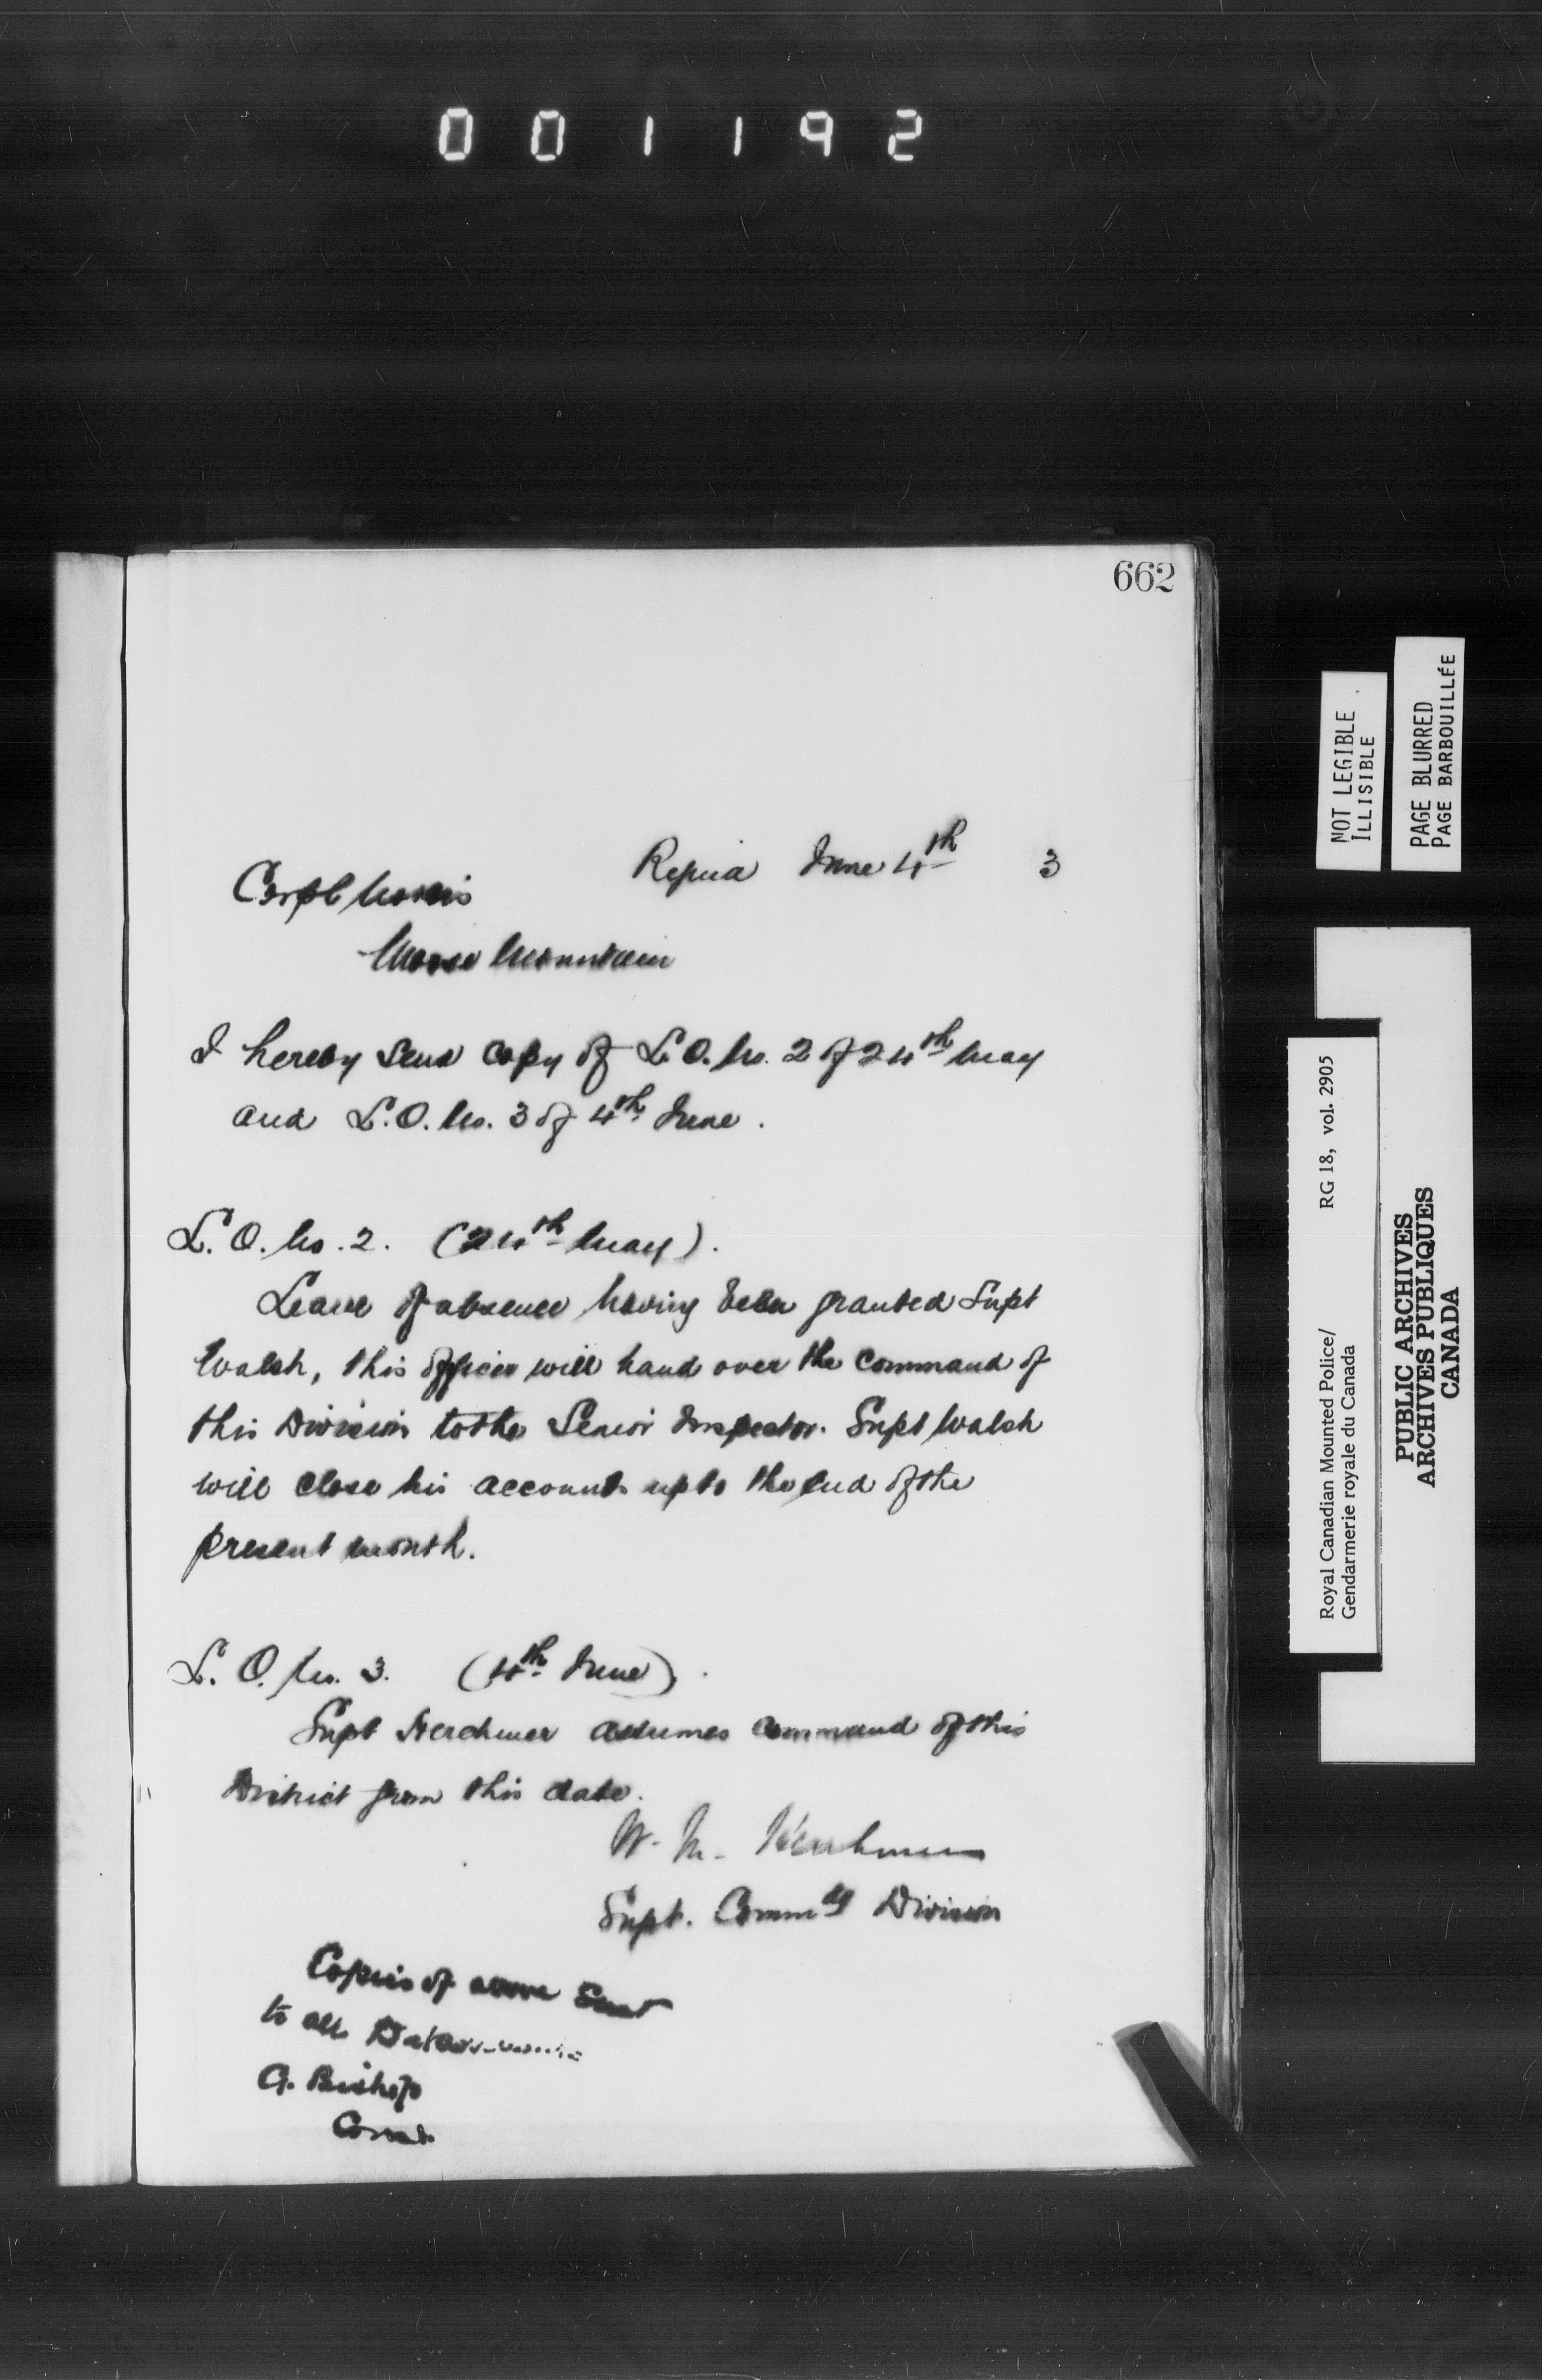 001192
662
Regina June 4th 3
Corpl Morris
Moose Mountain
I hereby send copy of L.O. No. 2 of 24th May
and L.O. No. 3 of 4th June.
L.O. No. 2. (24th May).
Leave of absence having been granted Supt
Walsh, this officer will hand over the command of
this Division to the Senior Inspector. Supt Walsh
will close his accounts up to the end of the
present month.
L.O. No. 3. (4th June).
Supt Herchmer assumes command of this
District from this date.
W. M. Herchmer
Supt. Commdg Division
Copies of above sent
to all
G. Bishop
Const.
NOT LEGIBLE
ILLISIBLE
PAGE BLURRED
PAGE BARBOUILLÉE
Royal Canadian Mounted Police/ RG 18, vol. 2905
Gendarmerie royale du Canada
PUBLIC ARCHIVES
ARCHIVES PUBLIQUES
CANADA